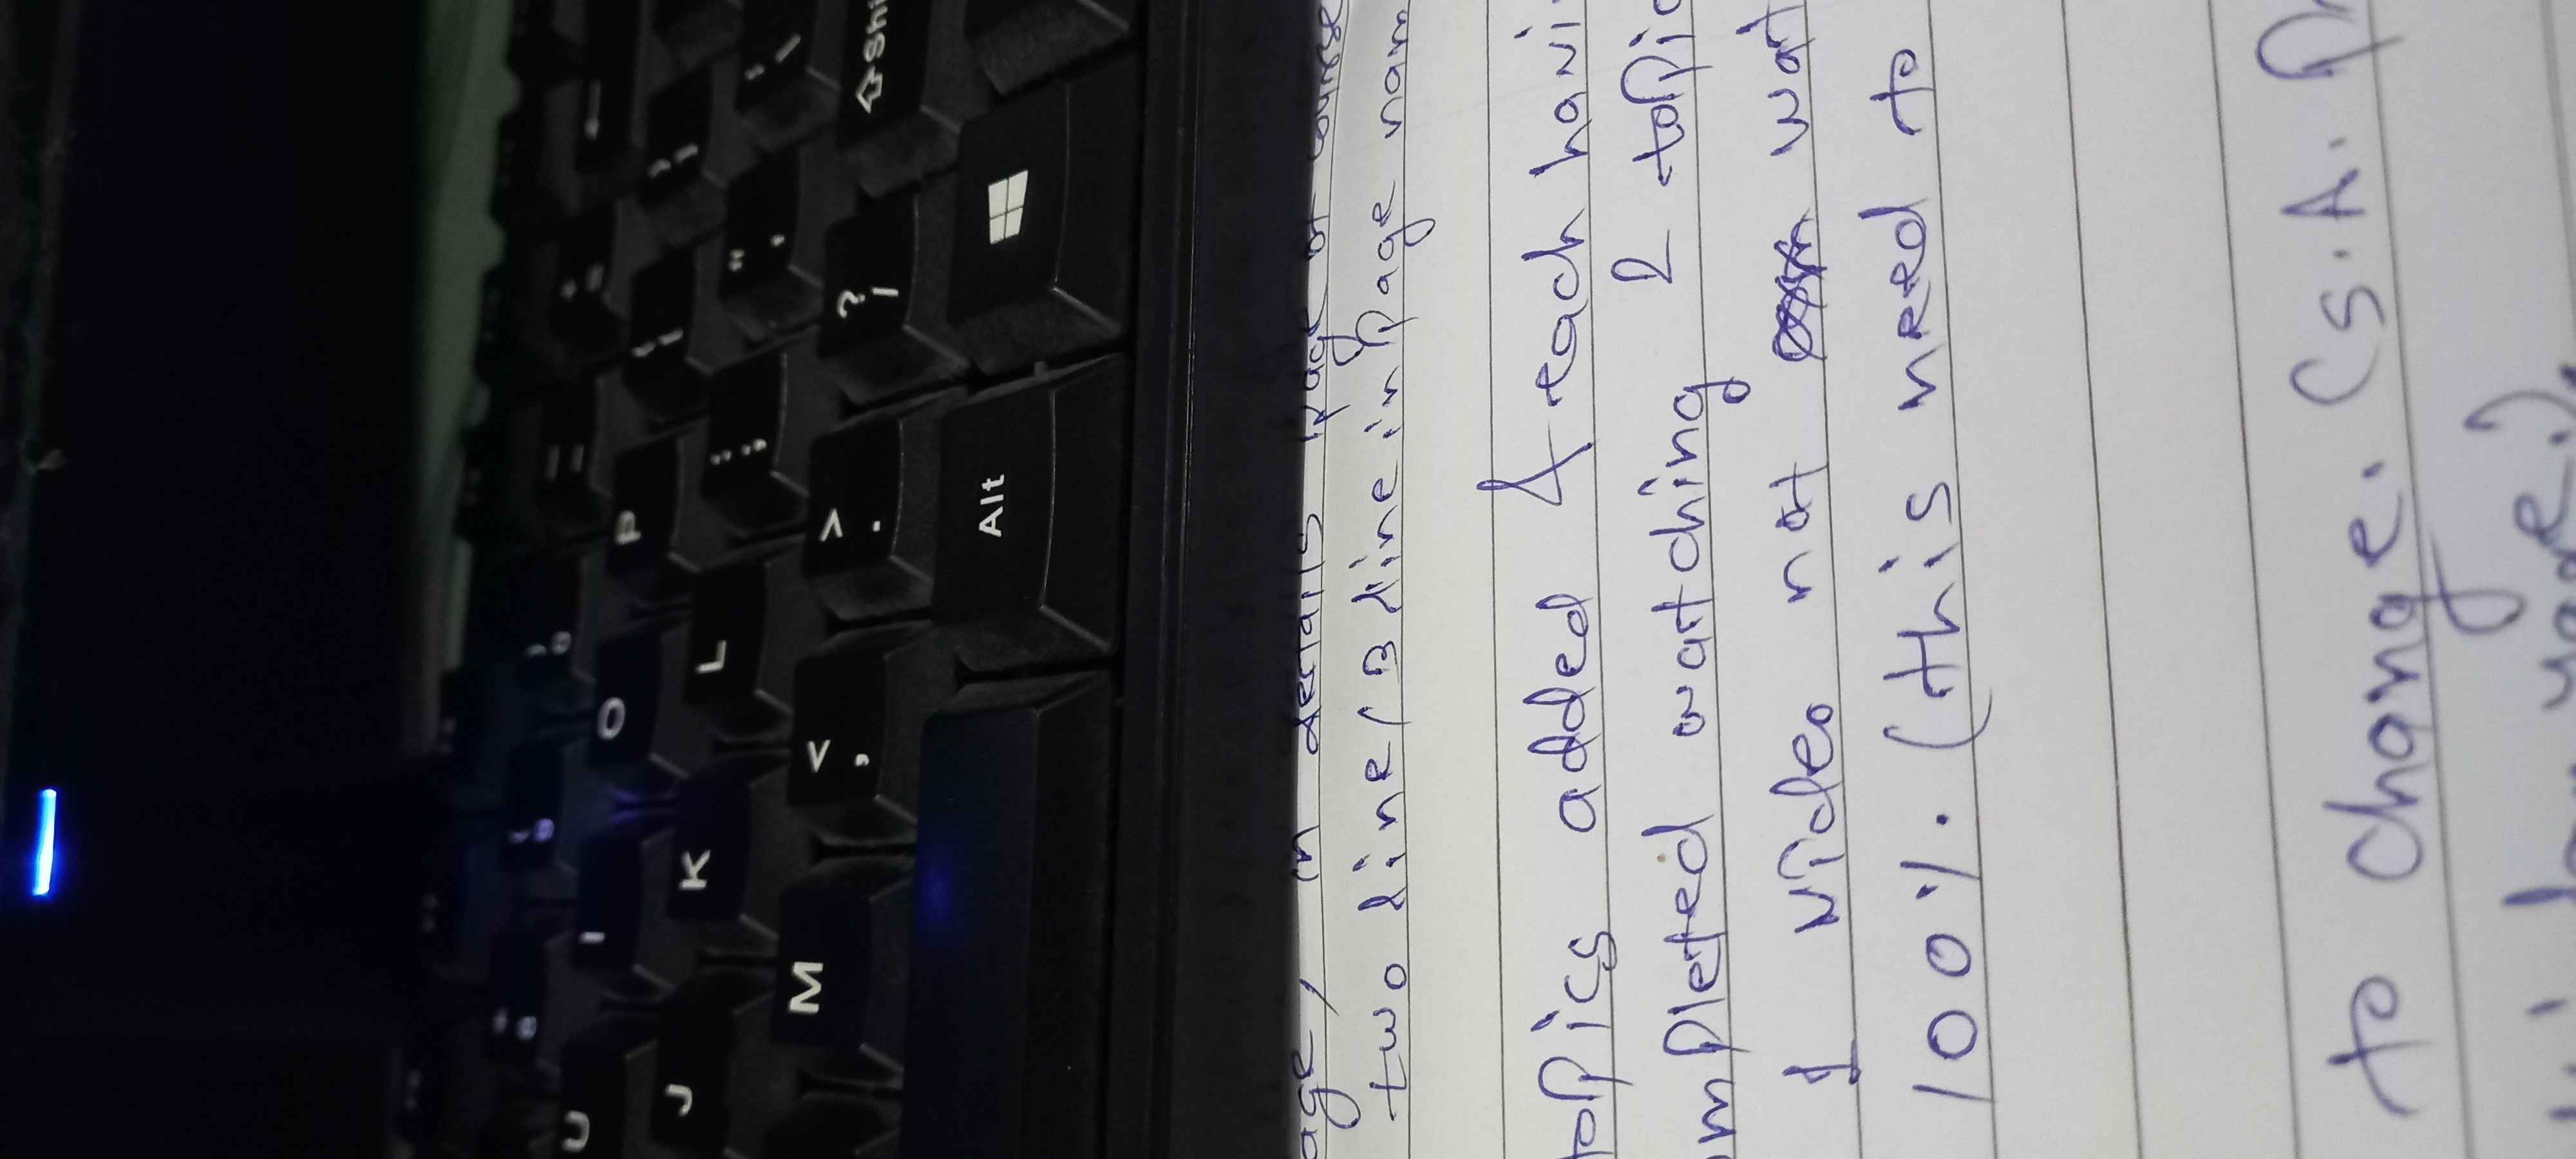 * 8 ( 9 ) 0 _ - + = ←
U I O P { [ } ]
J K L : ; " ' | \
M < , > . ? / ⇧Shi
Alt
age, in details page of course
two line/3 line in Page nam
topics added & each havi
ompleted watching 2 topic
1 video not wat
100%. (this need to
to change. (S.A. Pr
page.).